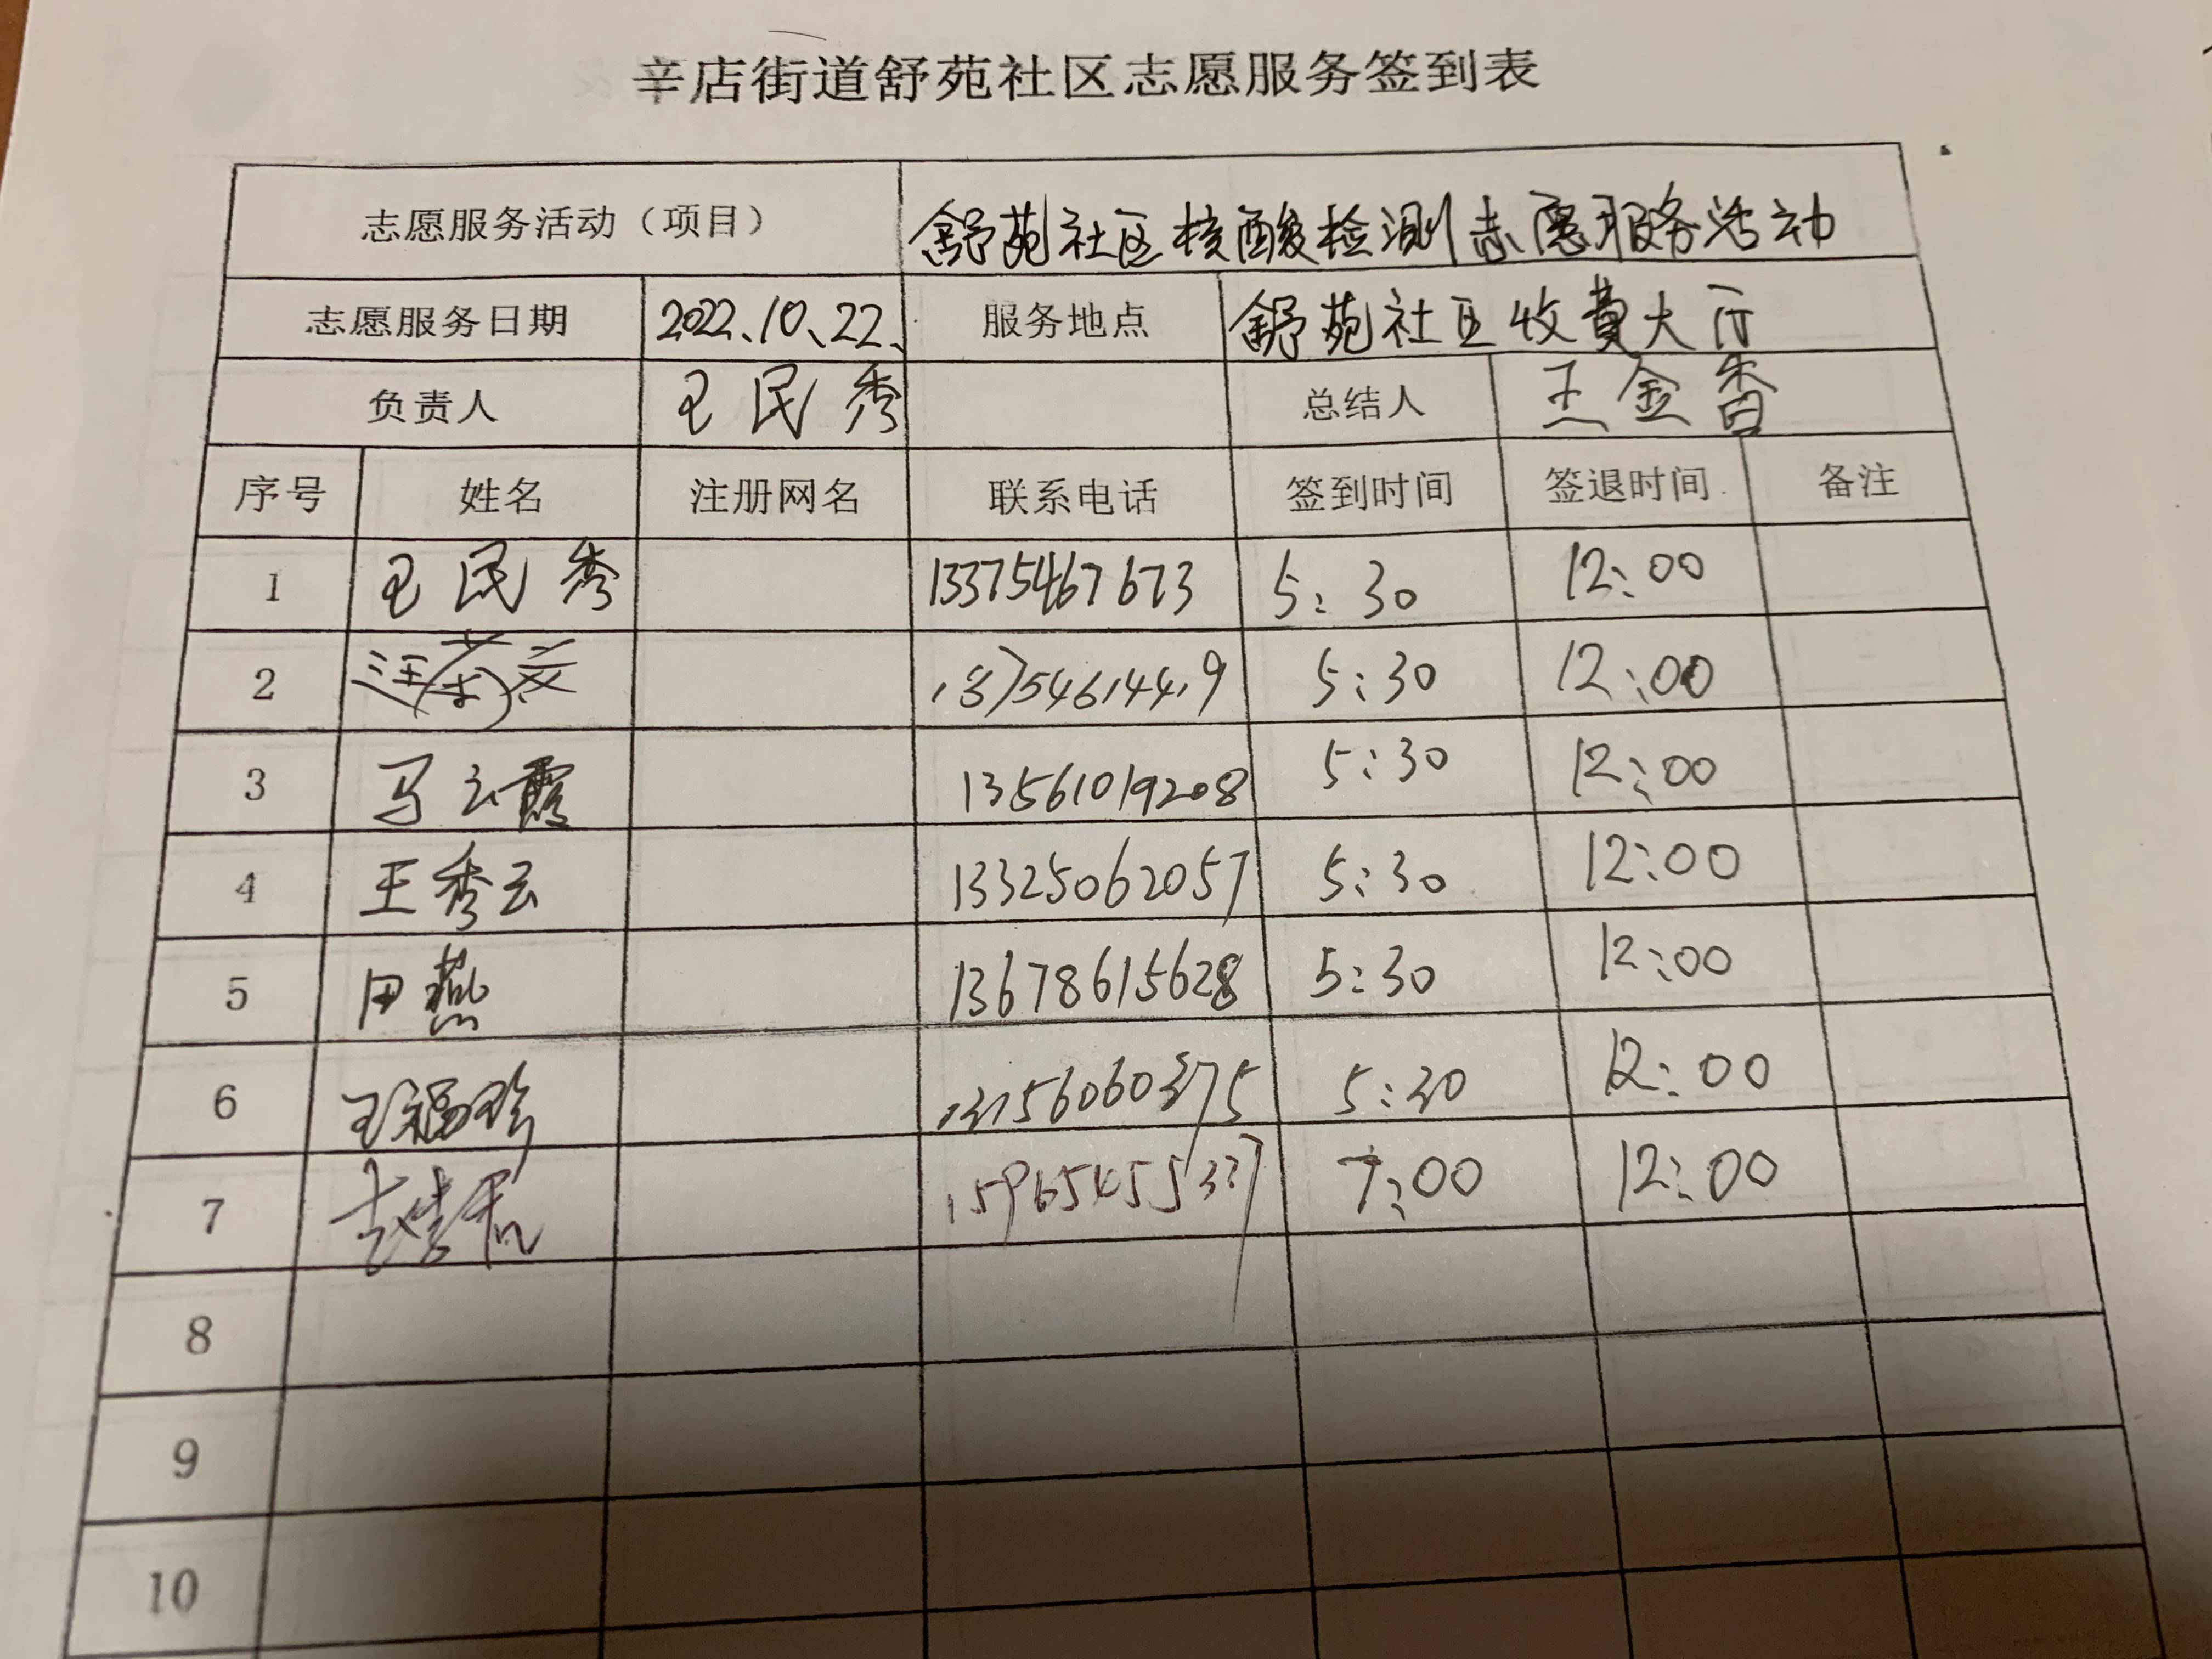 辛店街道舒苑社区志愿服务签到表
志愿服务活动（项目） 舒苑社区核酸检测志愿服务活动
志愿服务日期 2022、10、22、 服务地点 舒苑社区收费大厅
负责人 王民秀 总结人 王金香
序号 姓名 注册网名 联系电话 签到时间 签退时间 备注
1 王民秀 13375467673 5:30 12:00
2 18754614419 5:30 12:00
3 马云霞 13561019208 5:30 12:00
4 王秀云 13325062057 5:30 12:00
5 田燕 13678615628 5:30 12:00
6 王福珍 13156060375 5:30 12:00
7 7:00 12:00
8
9
10